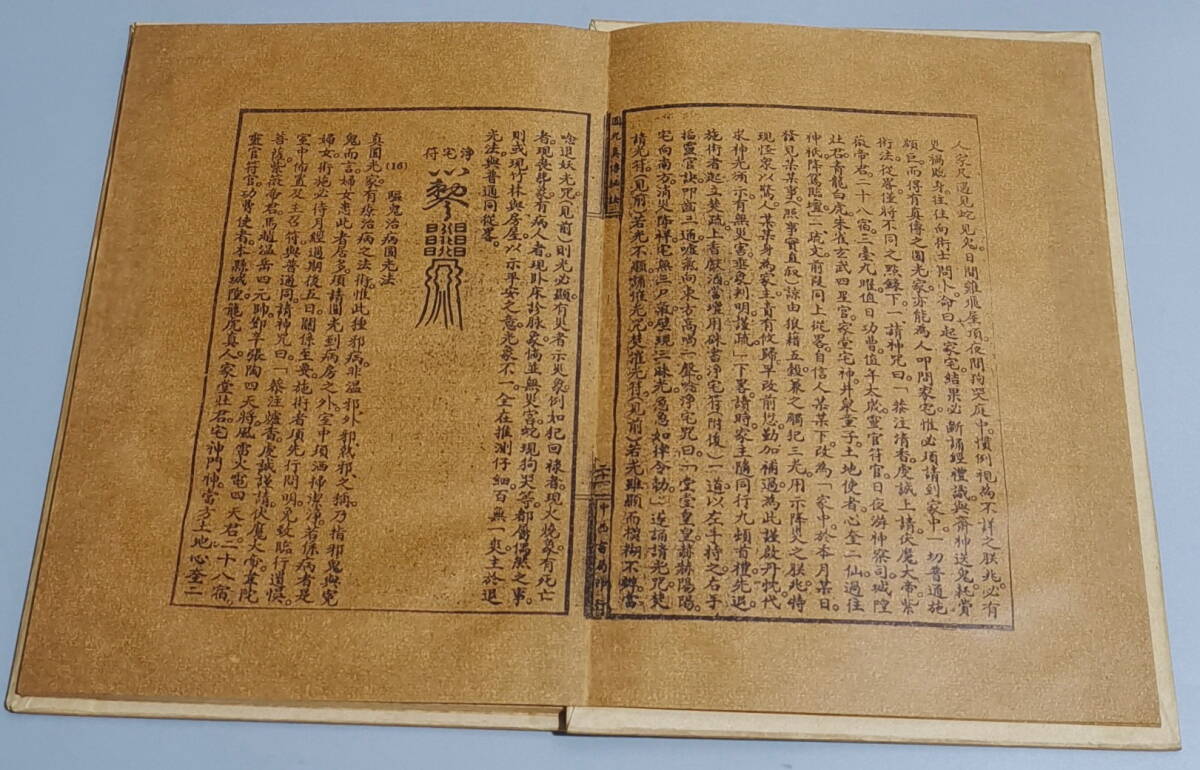 人家凡遇見蛇見兔日間雞飛屋頂夜間狗哭庭中慣例視為不詳之朕兆必有
災禍臨身往往向術士問卜命曰起家宅結果必斷誦經禮讖與齋神送鬼耗賞
頗巨而得有真傳之圓光家亦能為人叩問家宅惟必項請到家中一切普通施
術法從畧僅將不同之點錄下一請神咒曰「恭注清香虔誠上請伏魔大帝紫
薇帝君二十八宿三臺九曜值日功曹值年太歲靈官符官日夜游神察司城隍
社君青龍白虎朱雀玄武四星官家堂宅神井泉童子土地使者心奎二仙過往
神祇降駕臨壇」二疏文前段同上從畧自信人某某下改為「家中於本月某日
發見某某事(照事實直叙)諒由狼藉五穀業之觸犯三光用示降災之朕兆特
現怪象以驚人某某身為家主責有攸歸早改前愆勤加補過為此謹啟丹忱代
求神光須示有無災害垂象判明謹疏」下畧請時家主隨同行九頓首禮先退
施術者起立焚疏上香獻酒當壇用硃書淨宅符(附後)一道以左手持之右手
掐靈官訣叩齒三通噓氣向東方高喝一聲唸淨宅咒曰「堂堂皇皇赫赫陽陽
宅向南方消災降祥宅無三尸氣壁現三昧光急急如律令勅」逆誦請光咒焚
請光符(見前)若光不顯誦催光咒焚催光符(見前)若光雖顯而模糊不辨當
圓光真傳秘訣
二十一
中西書局印行
唸退妖光咒(見前)則光必顯有災者示災象例如犯回祿者現火燒象有死亡
者現喪葬裝有病人者現卧床診脈象倘並無災害蛇現狗哭等都屬偶然之事
則或現竹林與房屋以示平安之意光象不一全在推測仔細百無一爽主於退
光法與普通同從畧
淨宅符
(16) 驅鬼治病圓光法
真圓光家有療治病之法術惟此種邪病非溫邪外邪熱邪之稱乃指邪鬼與冤
鬼而言婦女患此者居多須請圓光到病房之外室中項洒掃潔淨若係病者是
婦女術施必待月經過期後五日關係至要施術者項先行問明免致臨行遺悞
室中佈置及主召符與普通同請神咒曰「恭注爐香虔誠謹請伏魔大帝韋陀
菩薩紫薇帝君馬趙溫岳四元帥鄧辛張陶四天將風雷火電四天君二十八宿
靈官符官功曹使者本縣城隍龍虎真人家堂社君宅神門神當方土地心奎二